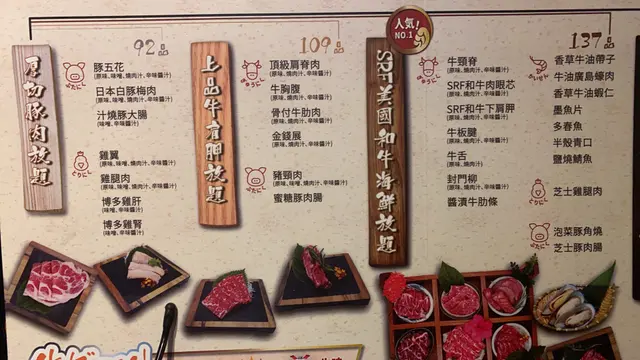 92品
厚切豚肉放題
ぶたにし
豚五花
(原味、味噌、燒肉汁、辛味醬汁)
日本白豚梅肉
(原味、味噌、燒肉汁、辛味醬汁)
汁燒豚大腸
(味噌、辛味醬汁)
とりにし
雞翼
(原味、味噌、燒肉汁、辛味醬汁)
雞腿肉
(原味、味噌、燒肉汁、辛味醬汁)
博多雞肝
(味噌、辛味醬汁)
博多雞腎
(味噌、辛味醬汁)
109品
上品牛肩胛放題
ぎゅうにし
頂級肩脊肉
(原味、燒肉汁、辛味醬汁)
牛胸腹
(原味、燒肉汁、辛味醬汁)
骨付牛肋肉
(原味、燒肉汁、辛味醬汁)
金錢展
(原味、燒肉汁、辛味醬汁)
豬頸肉
(原味、味噌、燒肉汁、辛味醬汁)
蜜糖豚肉腸
人気!
NO.1
137品
SRF美國和牛海鮮放題
牛頸脊
(原味、燒肉汁、辛味醬汁)
SRF和牛肉眼芯
(原味、燒肉汁、辛味醬汁)
SRF和牛下肩胛
(原味、燒肉汁、辛味醬汁)
牛板腱
(原味、燒肉汁、辛味醬汁)
牛舌
(原味、燒肉汁、辛味醬汁)
封門柳
(原味、燒肉汁、辛味醬汁)
醬漬牛肋條
香草牛油帶子
牛油廣島蠔肉
香草牛油蝦仁
墨魚片
多春魚
半殼青口
鹽燒鯖魚
芝士雞腿肉
泡菜豚角燒
芝士豚肉腸